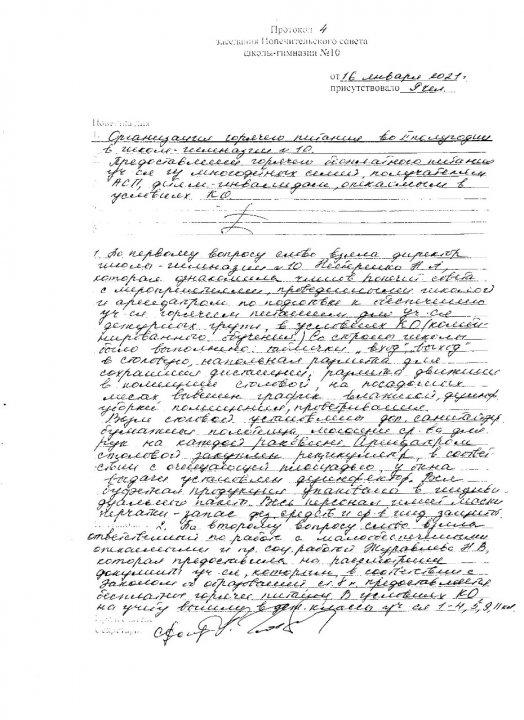 Протокол 4
заседания Попечительского совета
школы-гимназии №10
от 16 января 2021г.
присутствовало 9 чел.
Повестка дня
1. Организация горячего питания во II полугодии
в школе-гимназии №10.
Предоставление горячего бесплатного питания
уч-ся из многодетных семей, получателям
АСП, детям-инвалидам, опекаемым в
условиях КО
1. По первому вопросу слово взяла директор
школы-гимназии №10 Нестеренко Н.А.,
которая ознакомила членов совета
с мероприятиями, проведенными школой
и арендатором по подготовке к обеспечению
уч-ся горячим питанием для уч-ся
дежурных групп, в условиях КО (комби-
нированного обучения) Со стороны школы
было выполнено: таблички "вход" "выход"
в столовую, напольная разметка для
сохранения дистанции, разметка движения
в помещении столовой, на посадочных
местах, вывешен график влажной,
уборки помещения, проветривания.
столовой установлены доп. санитайзер
бумажные полотенца, моющие ср-ва для
рук на каждой раковине. Арендатором
столовой закуплен рециркулятор, в соответ
ствии с площадью, у окна
выдачи установлен
продукция упакована в индиви
дуальный пакет. Весь персонал имеет маски
перчатки - запас дез. средств и ср-в инд. защиты.
2. По второму вопросу слово взяла
ответственный по работе с малообеспеченными
опекаемыми и пр. соц. работой Журавлева Н.В,
которая предоставила на рассмотрение
документы уч-ся, которым в соответствии с
Законом об образовании предоставляется
бесплатно горячее питание. В условиях КО,
на учебу вышли в деж. классы уч-ся 1-4, 5, 9, 11 кл.
Секретарь